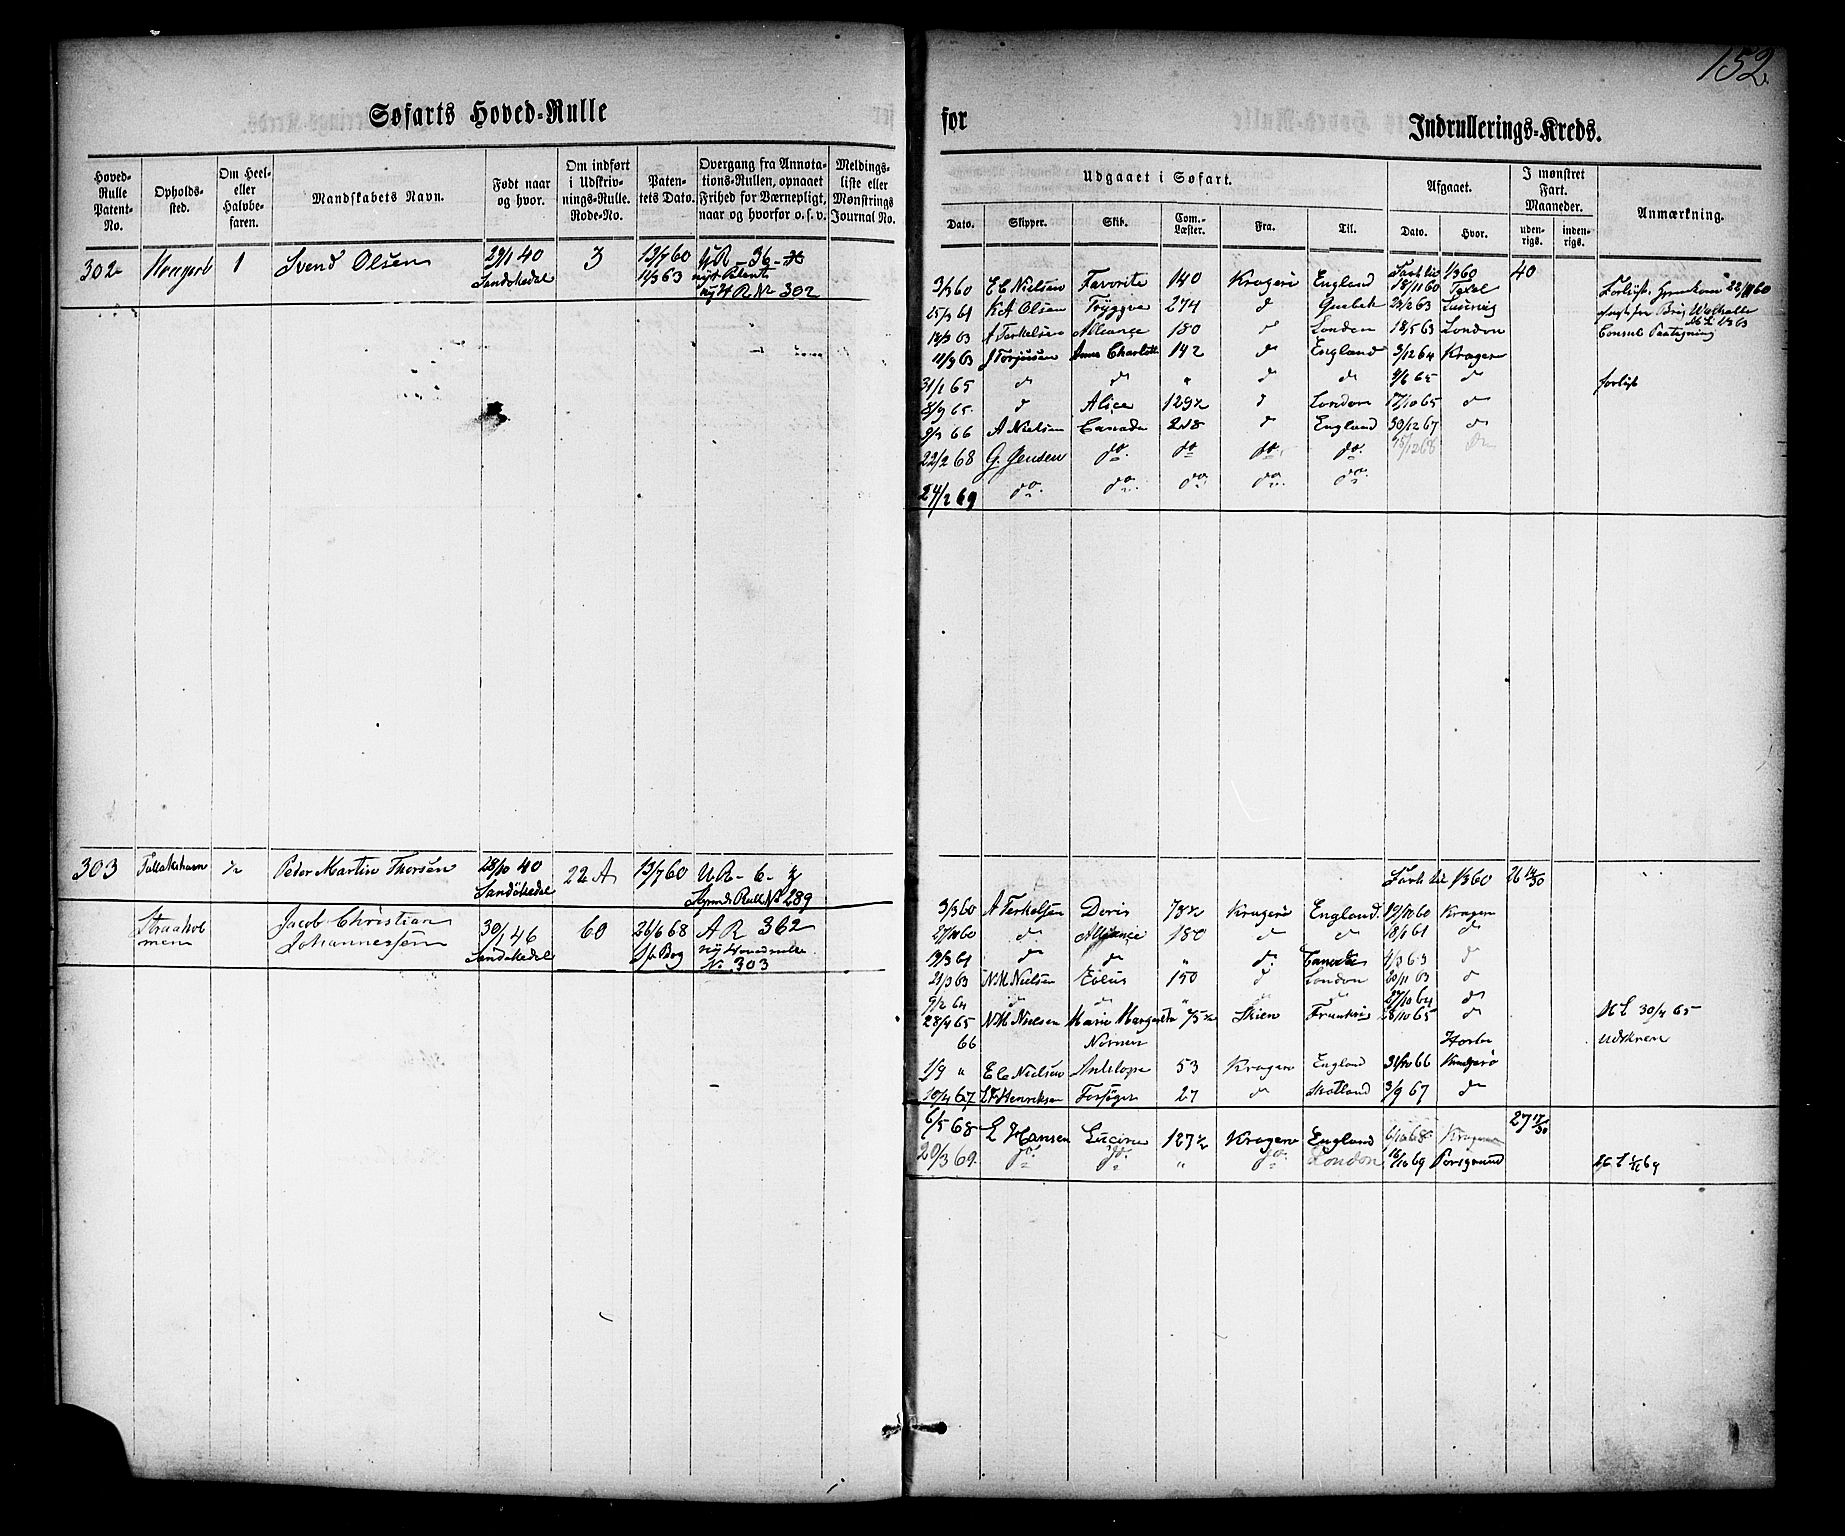 152
Søfarts Hoved-Rulle for Indrullerings-Kreds.
Hoved-Rulle Patent-No.
Opholds-sted.
Om Heel- eller Halvbe-faren.
Mandskabets Navn.
Født naar og hvor.
Om indført i Udskriv-nings-Rulle. Rode-No.
Paten-tets Dato.
Overgang fra Annota-tions-Rullen, opnaaet Frihed for Værnepligt, naar og hvorfor o. s. v.
Meldings-liste eller Mønstrings Journal No.
Udgaaet i Søfart.
Dato. Skipper. Skib. Com.-Læster. Fra. Til.
Afgaaet.
Dato. Hvor.
I mønstret Fart. Maaneder.
uden-rigs. inden-rigs.
Anmærkning.
302 1 Svend Olsen 29/1 40 3 13/7 60 UR - 36 -
Sandøkedal 11/3 63 nyt Patent
ny H R No 302
Farts til 1/3 60 40
3/3 60 E C Nielsen Favorite 140 Kragerø England 18/11 60
25/3 61 K A Olsen Tryggve 274 d Quebek 23/2 63
12/3 63 A Terkelsen Alliance 180 d London 18/5 63 London
11/9 63 J Torjusen Anna Charlotte 142 d England 3/12 64 Krager
31/1 65 d d " d d d forlist
8/9 65 d Alice 129½ d London 17/10 65 d
9/3 66 A Nielsen Canada 228 d England 30/12 67 d
22/2 68 G. Jensen do. do do. do.
24/2 69 do. do. do. do. do.
303 ½ Peder Martin Thorsen 28/10 40 22 A 13/7 60 UR - 6 -
Sandøkedal No 289
Farts til 1/3 60 26 14/30
3/3 60 A Terkelsen Doris 78½ Kragerø England. 19/10 60 Krager
27/10 60 d Alliance 180 d d 18/1 61 d
19/3 61 d d " d Canada 1/3 63 d
21/3 63 N M Nielsen Eolus 150 d London 20/11 63 d
9/2 64 d d " d d 27/10 64 d
28/4 65 N M Nielsen Marie Margarethe 75½ Skien Frankrig 28/10 65 d M L 30/4 65
66
1/9 " E C Nielsen Antelope 53 Kragerø England 31/10 66 Kragerø
10/4 67 Henriksen Forsøget 27 d Skotland 3/9 67 d
Jacob Christian Johannessen 30/1 46 60 26/6 68 A R 362
Sandøkedal ny Hovedrulle
No 303
6/5 68 L Hansen Lucina 127½ Kragerø England 6/10 68 Kragerø 27 17/30
20/3 69 do. do. " do. London 16/10 69 Porsgrund